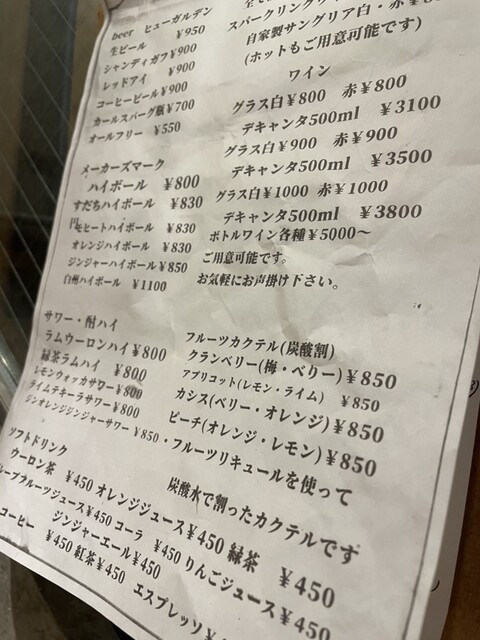 beer ヒューガルデン
¥950
生ビール
シャンディガフ¥900
レッドアイ ¥900
コーヒービール¥900
カールスバーグ瓶¥700
オールフリー ¥550
メーカーズマーク
ハイボール ¥800
すだちハイボール ¥830
モヒートハイボール ¥830
オレンジハイボール ¥830
ジンジャーハイボール¥850
白州ハイボール ¥1100
サワー・酎ハイ
ラムウーロンハイ¥800
緑茶ラムハイ ¥800
レモンウォッカサワー¥800
ライムテキーラサワー¥800
ジンオレンジジンジャーサワー ¥850
スパークリングワイ
自家製サングリア白・赤
(ホットもご用意可能です)
ワイン
グラス白¥800 赤¥800
デキャンタ500ml ¥3100
グラス白¥900 赤¥900
デキャンタ500ml ¥3500
グラス白¥1000 赤¥1000
デキャンタ500ml ¥3800
ボトルワイン各種¥5000〜
ご用意可能です。
お気軽にお声掛け下さい。
フルーツカクテル(炭酸割)
クランベリー(梅・ベリー)¥850
アプリコット(レモン・ライム) ¥850
カシス(ベリー・オレンジ)¥850
ピーチ(オレンジ・レモン)¥850
・フルーツリキュールを使って
炭酸水で割ったカクテルです
ソフトドリンク
ウーロン茶 ¥450 オレンジジュース¥450 緑茶 ¥450
レープフルーツジュース¥450 コーラ ¥450 りんごジュース¥450
コーヒー ジンジャーエール¥450
¥450 紅茶¥450 エスプレッソ